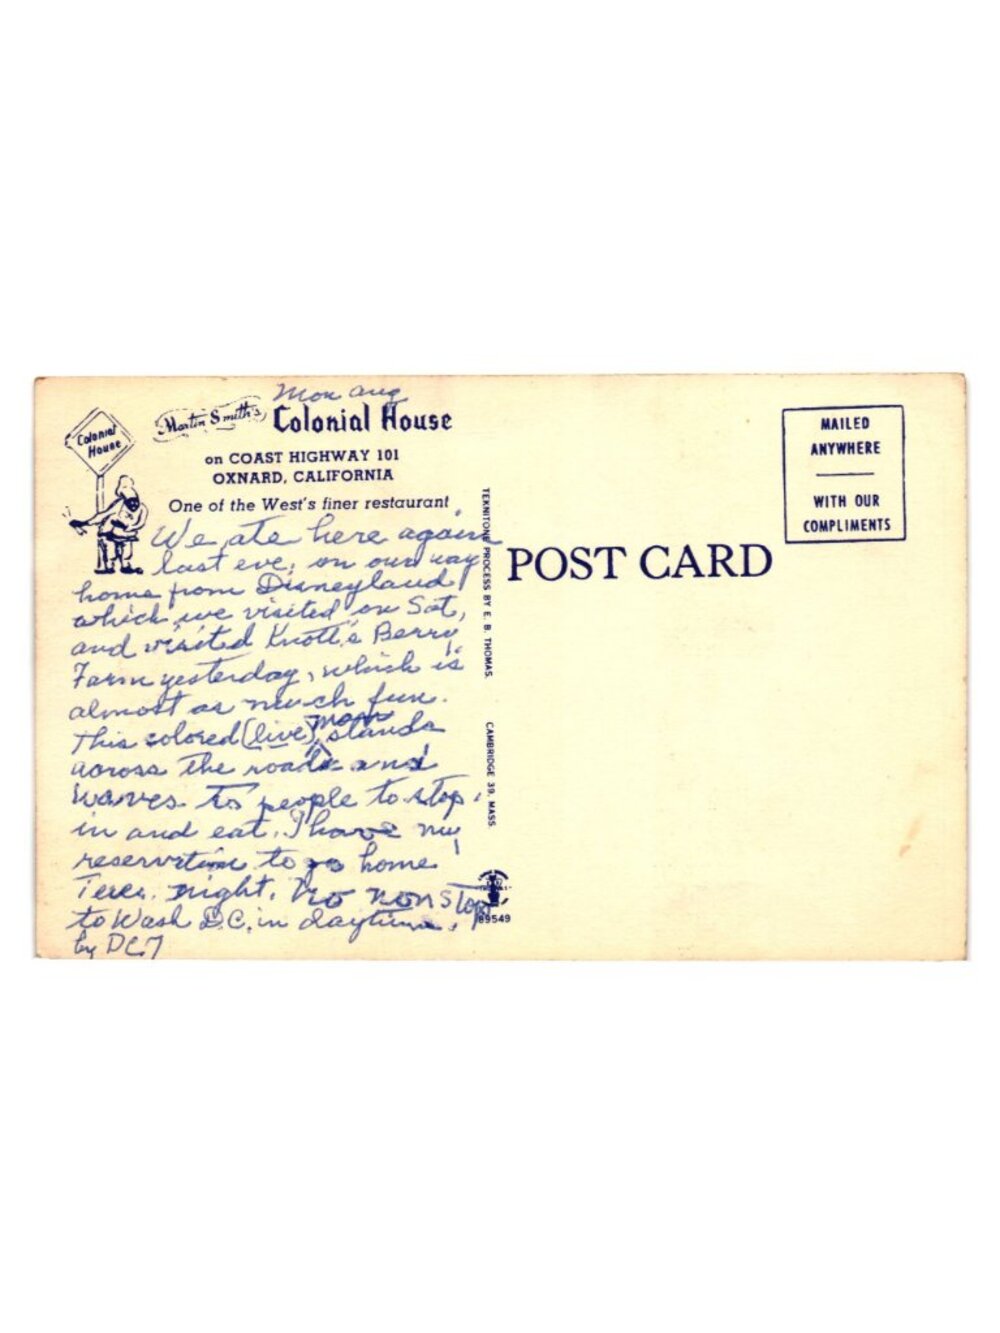 Mon Aug
Colonial
House
Martin Smith's
Colonial House
on COAST HIGHWAY 101
OXNARD, CALIFORNIA
One of the West's finer restaurant
We ate here again
last eve, on our way
home from Disneyland
which we visited on Sat,
and visited Knott's Berry
Farm yesterday, which is
almost as much fun.
This colored (live) man stands
across the road and
waves to people to stop
in and eat. I have my
reservation to go home
Tues. night. No nonstop
to Wash D.C. in daytime,
by DC7
TEKNITONE PROCESS BY E. B. THOMAS. CAMBRIDGE 39, MASS.
89549
POST CARD
MAILED
ANYWHERE
WITH OUR
COMPLIMENTS